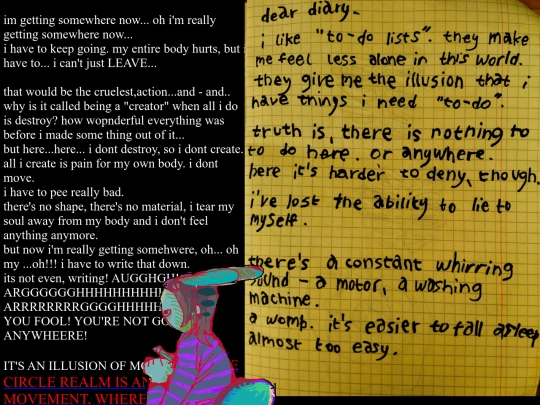 im getting somewhere now... oh i'm really
getting somewhere now...
i have to keep going. my entire body hurts, but i
have to... i can't just LEAVE...
that would be the cruelest,action...and - and..
why is it called being a "creator" when all i do
is destroy? how wopnderful everything was
before i made some thing out of it...
but here...here... i dont destroy, so i dont create.
all i create is pain for my own body. i dont
move.
i have to pee really bad.
there's no shape, there's no material, i tear my
soul away from my body and i don't feel
anything anymore.
but now i'm really getting somehwere, oh... oh
my ...oh!!! i have to write that down.
its not even, writing! AUGGHGH
ARGGGGGGHHHHHHHHHH
ARRRRRRRGGGGHHHHH
YOU FOOL! YOU'RE NOT
ANYWHEERE!
IT'S AN ILLUSION OF
CIRCLE REALM IS
MOVEMENT. WHERE
dear diary-
i like "to-do lists". they make
me feel less alone in this world.
they give me the illusion that i
have things i need "to-do".
truth is, there is nothing to
to do here. or anywhere.
here it's harder to deny, though.
i've lost the ability to lie to
myself.
there's a constant whirring
sound - a motor, a washing
machine.
a womb. it's easier to fall asleep
almost too easy.